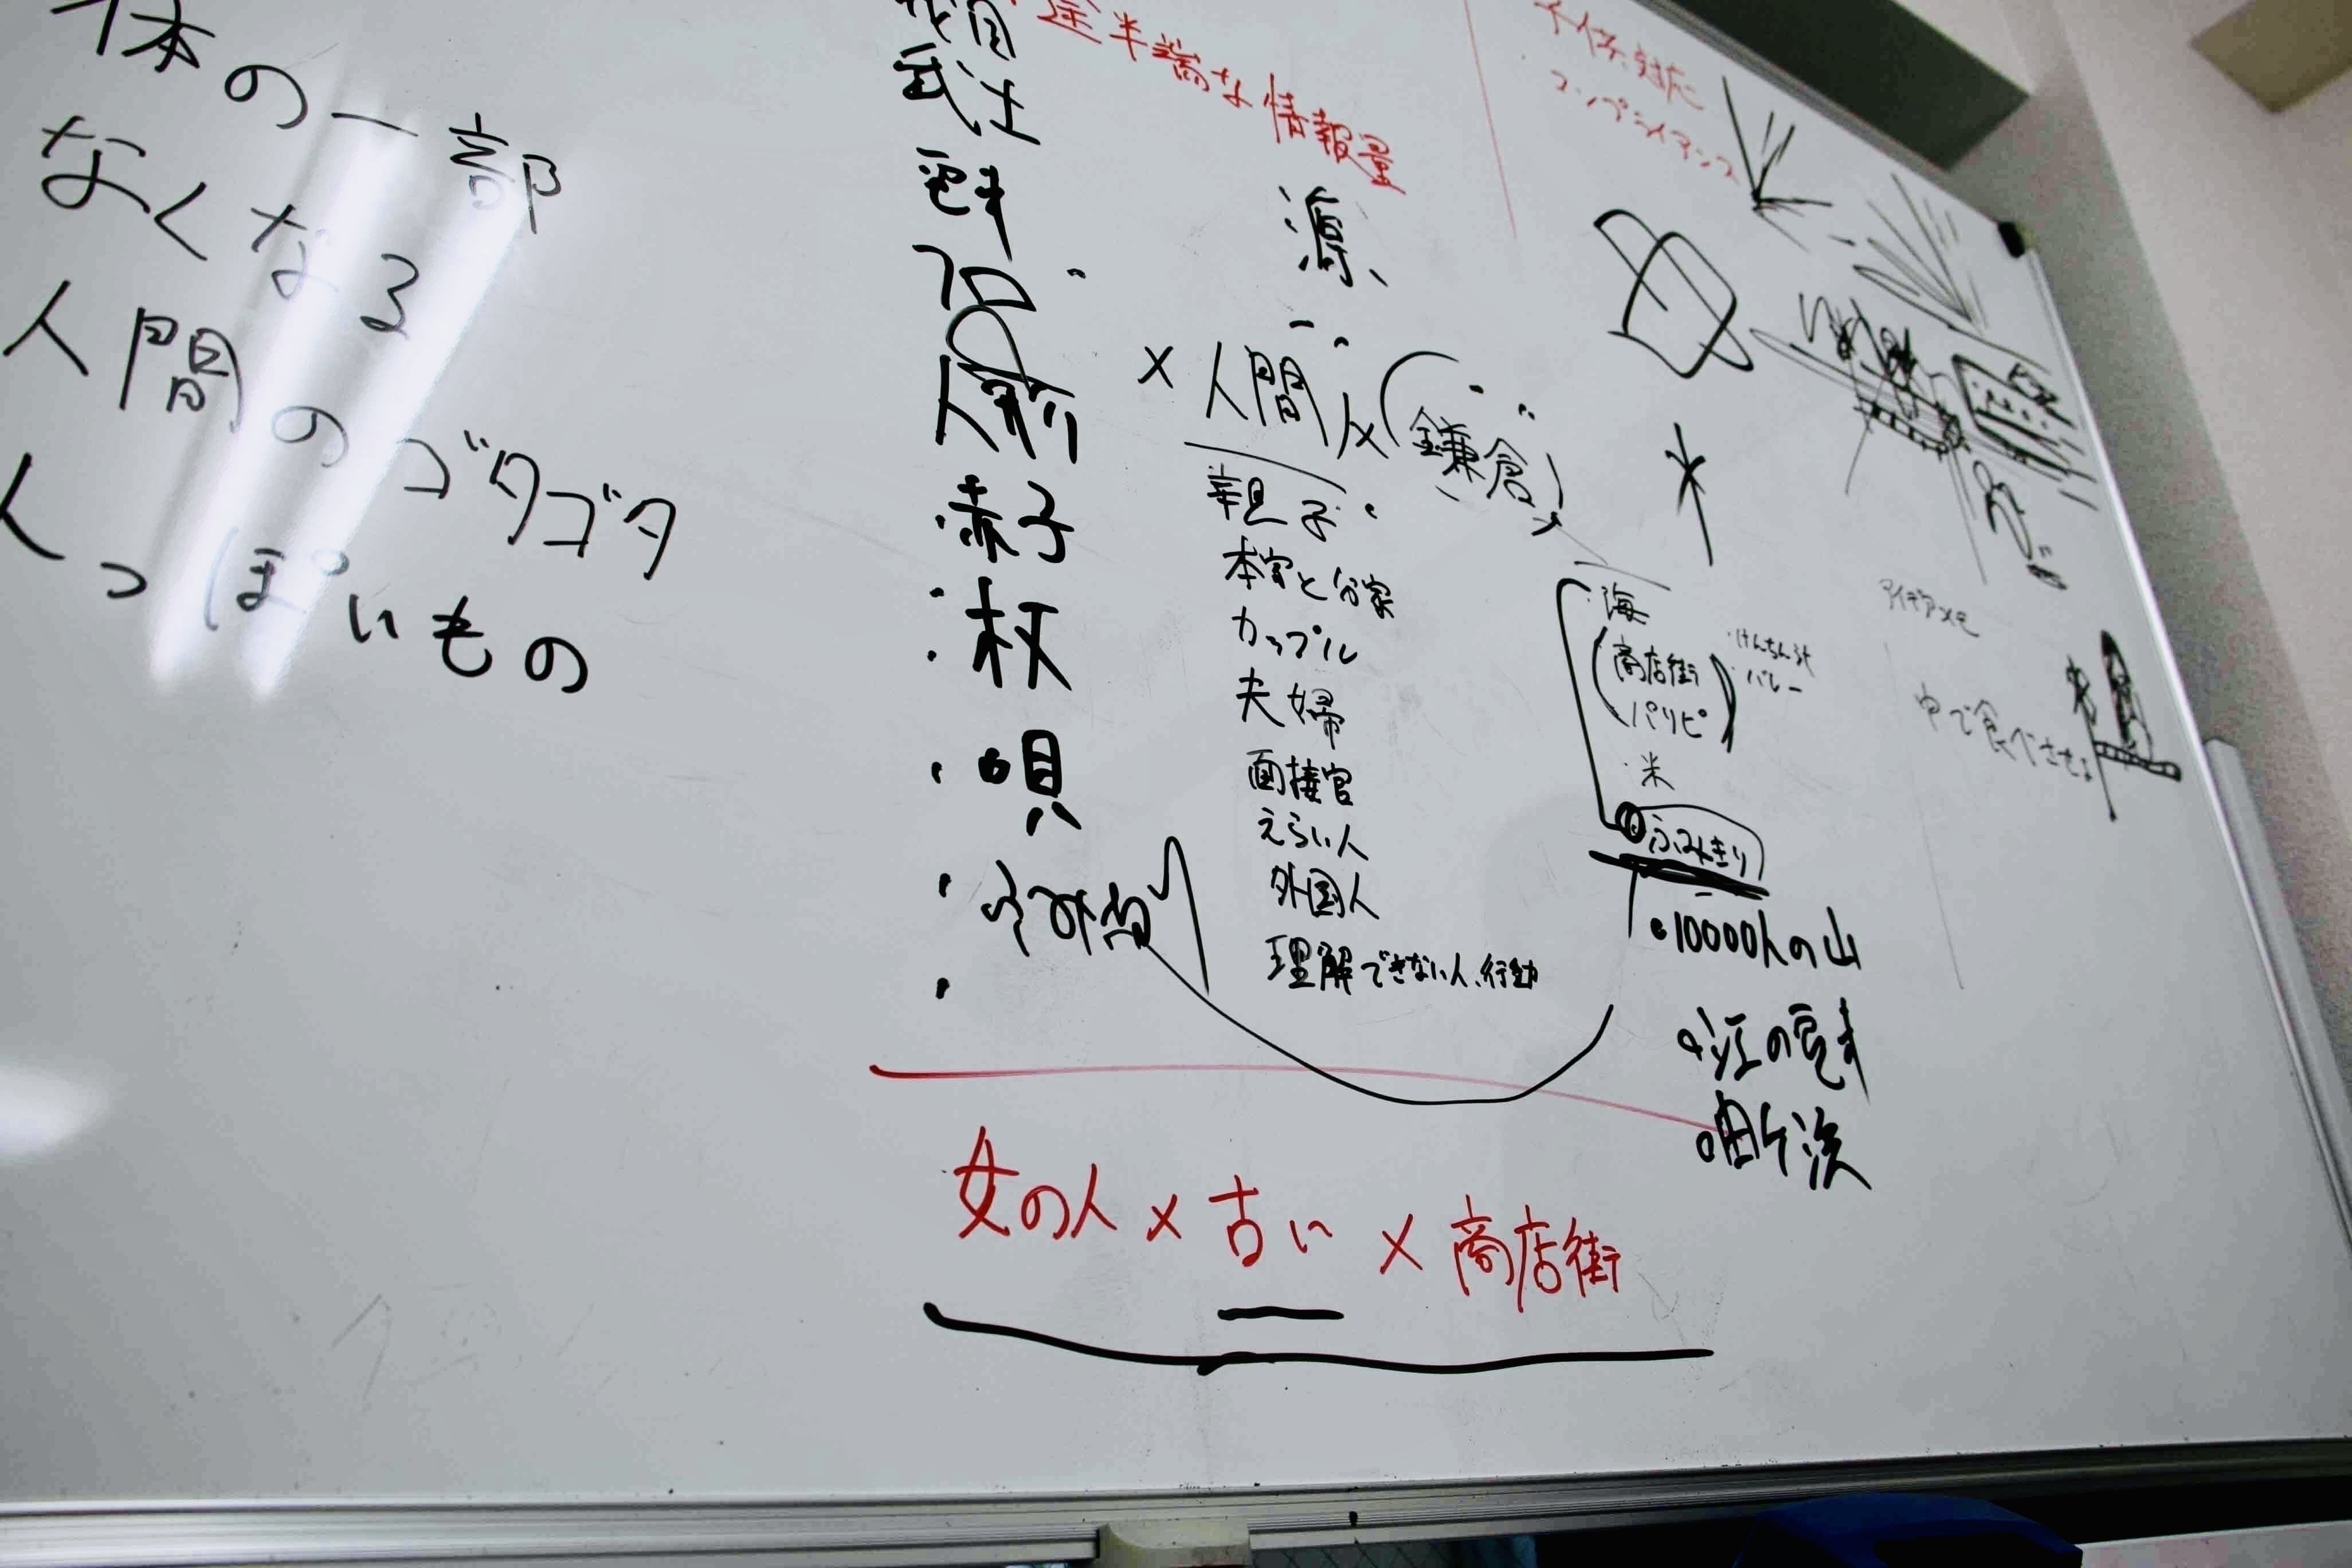 体の一部
なくなる
人間のゴタゴタ
人っぽいもの
武士
人形
赤子
枚
唄
途半端な情報量
源
×人間×(鎌倉)
親子
本家と分家
カップル
夫婦
面接官
えらい人
外国人
理解できない人、行動
子供対応
コンプライアンス
海
商店街
パリピ
けんちん汁
カレー
米
ふみきり
10000人の山
アイデアメモ
中で食べさせ
女の人×古い×商店街